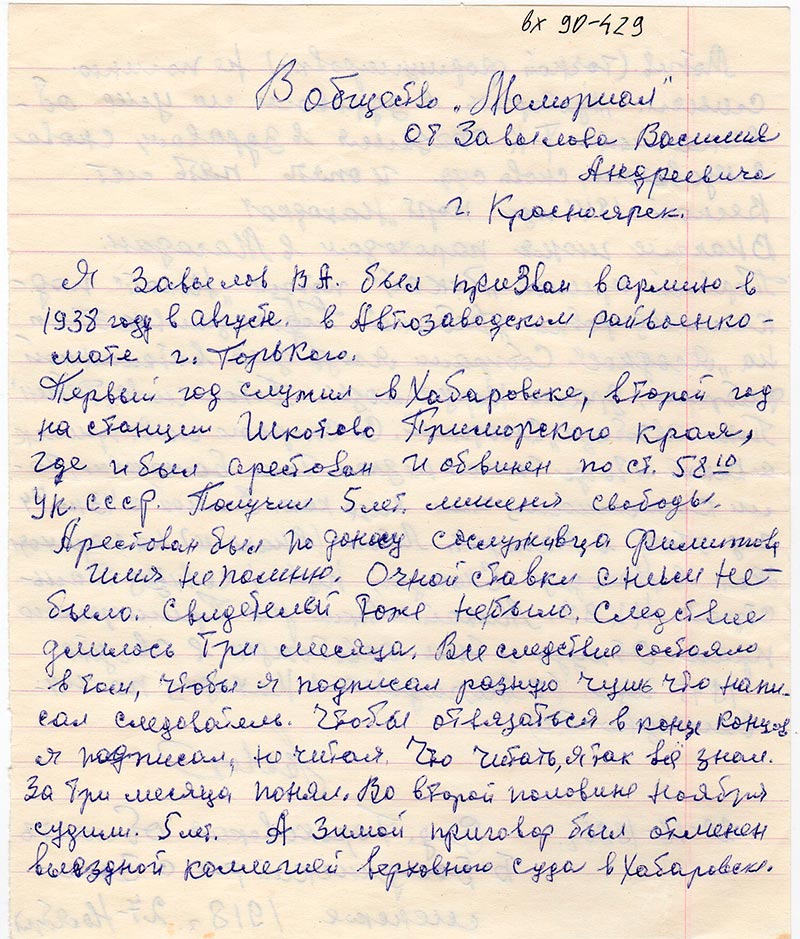 вх 90-429
В общество „Мемориал"
от Завьялова Василия
Андреевича
г. Красноярск.
Я Завьялов В А. был призван в армию в
1938 году в августе. в Автозаводском райвоенко-
мате г. Горького.
Первый год служил в Хабаровске, второй год
на станции Шкотово Приморского края,
где и был арестован и обвинен по ст. 58 10
УК СССР. Получил 5 лет. лишения свободы.
Арестован был по доносу сослуживца Филиппова
имя не помню. Очной ставки с ним не-
было. Свидетелей тоже небыло. Следствие
длилось три месяца. Все следствие состояло
в том, чтобы я подписал разную чушь что напи-
сал следователь. Чтобы отвязаться в конце концов
я подписал, не читая. Что читать, я так всё знал.
За три месяца понял. Во второй половине ноября
судили. 5 лет. А зимой приговор был отменен
выездной коллегией верховного суда в Хабаровске.